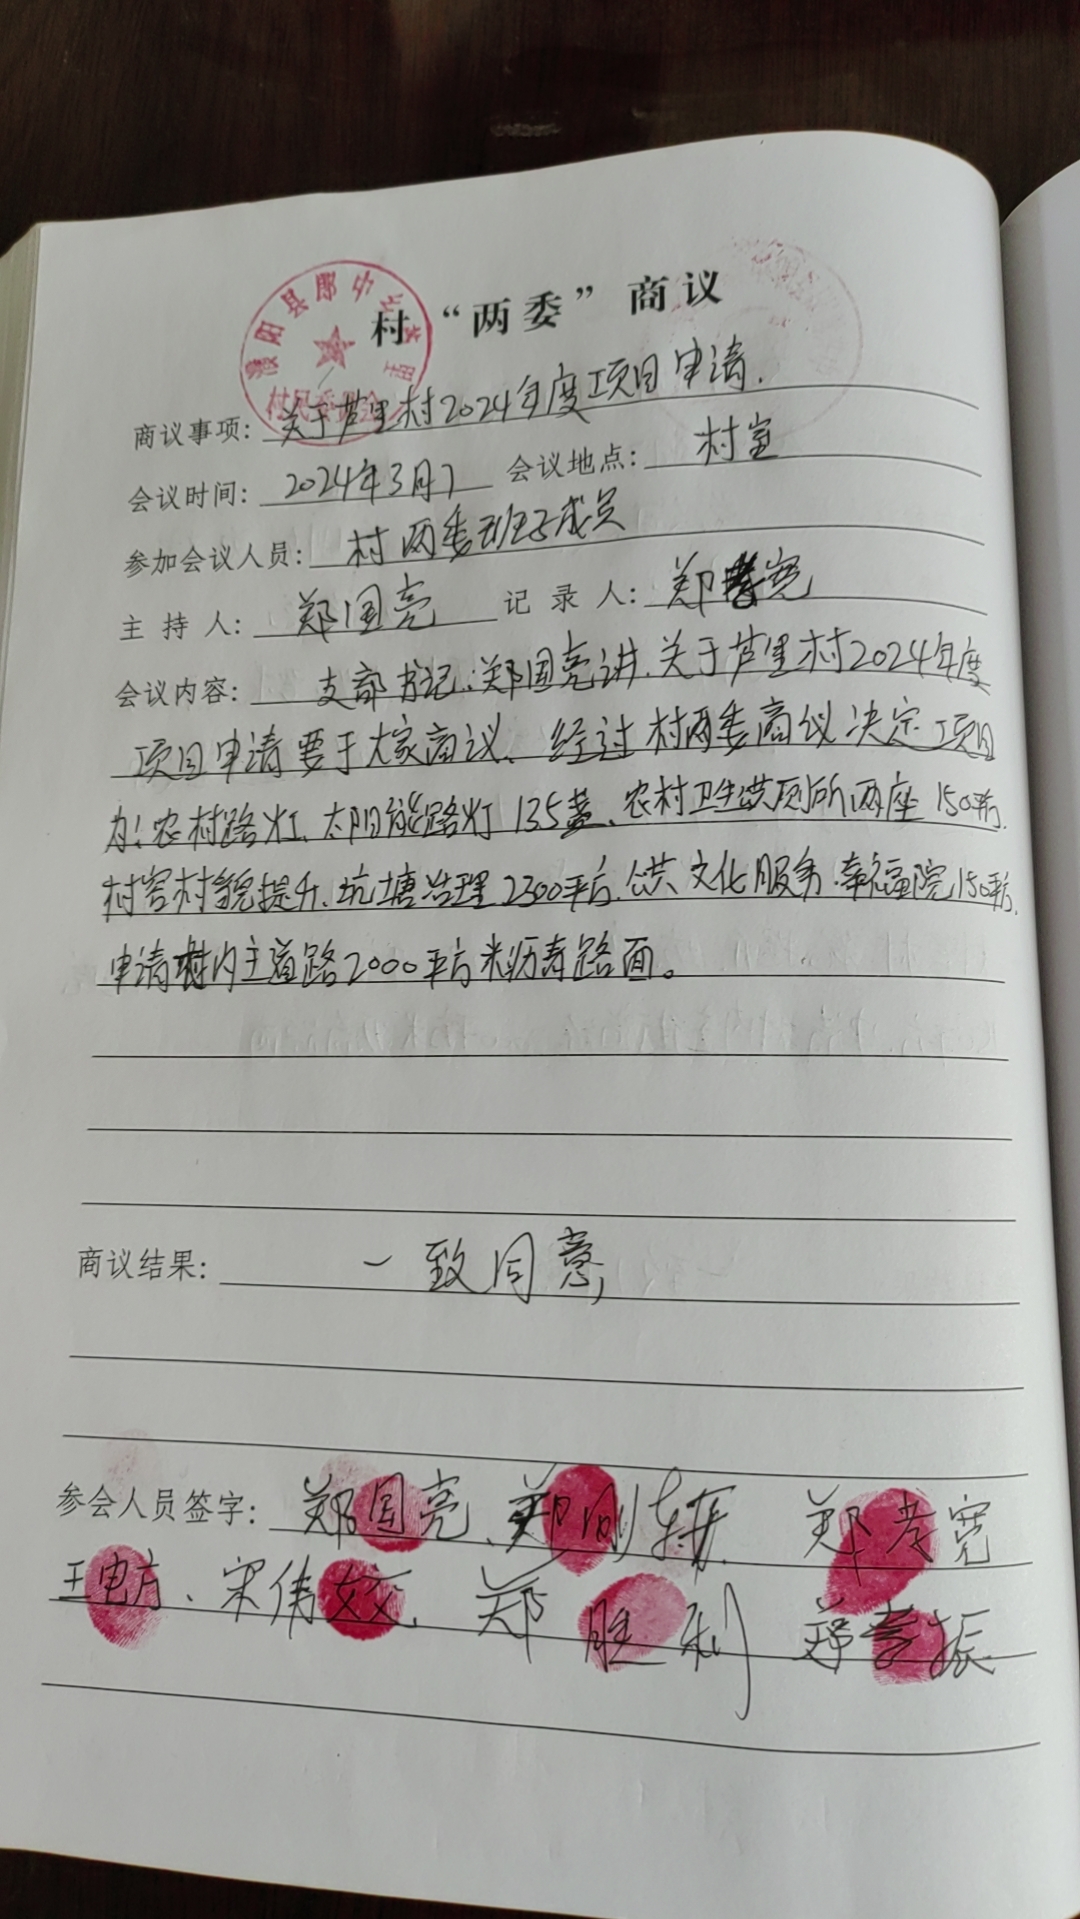 村“两委”商议
濮阳县郎中乡芦里
村民委员会
商议事项：关于芦里村2024年度项目申请.
会议时间：2024年3月7 会议地点：村室
参加会议人员：村两委班子成员
主持人：郑国亮 记录人：郑孝宽
会议内容：支部书记：郑国亮讲.关于芦里村2024年度
项目申请要于大家商议、经过村两委商议决定项目
为：农村路灯、太阳能路灯135盏、农村卫生公共厕所两座150平方.
村容村貌提升、坑塘治理2300平方.公共文化服务.幸福院150平方.
申请村内主道路2000平方米沥青路面。
商议结果：一致同意
参会人员签字：郑国亮、郑刚 郑孝宽
王电方、宋伟姣、郑胜利 郑孝振